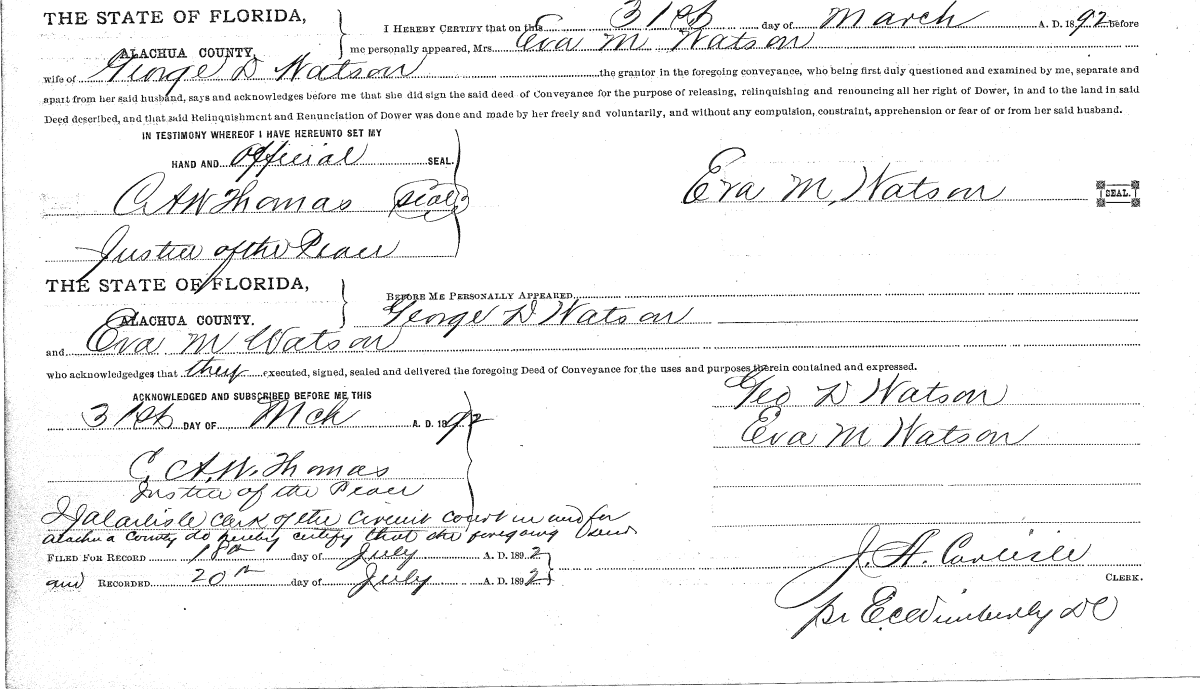 THE STATE OF FLORIDA,
ALACHUA COUNTY.
I HEREBY CERTIFY that on this 31st day of March A. D. 1892 before
me personally appeared, Mrs. Eva M Watson
wife of George D Watson the grantor in the foregoing conveyance, who being first duly questioned and examined by me, separate and
apart from her said husband, says and acknowledges before me that she did sign the said deed of Conveyance for the purpose of releasing, relinquishing and renouncing all her right of Dower, in and to the land in said
Deed described, and that said Relinquishment and Renunciation of Dower was done and made by her freely and voluntarily, and without any compulsion, constraint, apprehension or fear of or from her said husband.
IN TESTIMONY WHEREOF I HAVE HEREUNTO SET MY
HAND AND official SEAL.
C. A W Thomas (seal)
Eva M, Watson SEAL.
Justice of the Peace
THE STATE OF FLORIDA,
ALACHUA COUNTY.
BEFORE ME PERSONALLY APPEARED
George D Watson
and Eva M Watson
who acknowledgedges that they executed, signed, sealed and delivered the foregoing Deed of Conveyance for the uses and purposes therein contained and expressed.
ACKNOWLEDGED AND SUBSCRIBED BEFORE ME THIS
31st DAY OF Mch A. D. 1892
Geo D Watson
Eva M Watson
C. A. W. Thomas
Justice of the Peace
I J A Carlisle Clerk of the Circuit Court in and for
Alachua County do hereby certify that the foregoing Deed
FILED FOR RECORD 18th day of July A. D. 1892
and RECORDED 20th day of July A. D. 1892
J. A. Carlisle
CLERK.
pr E. C. Wimberly D C